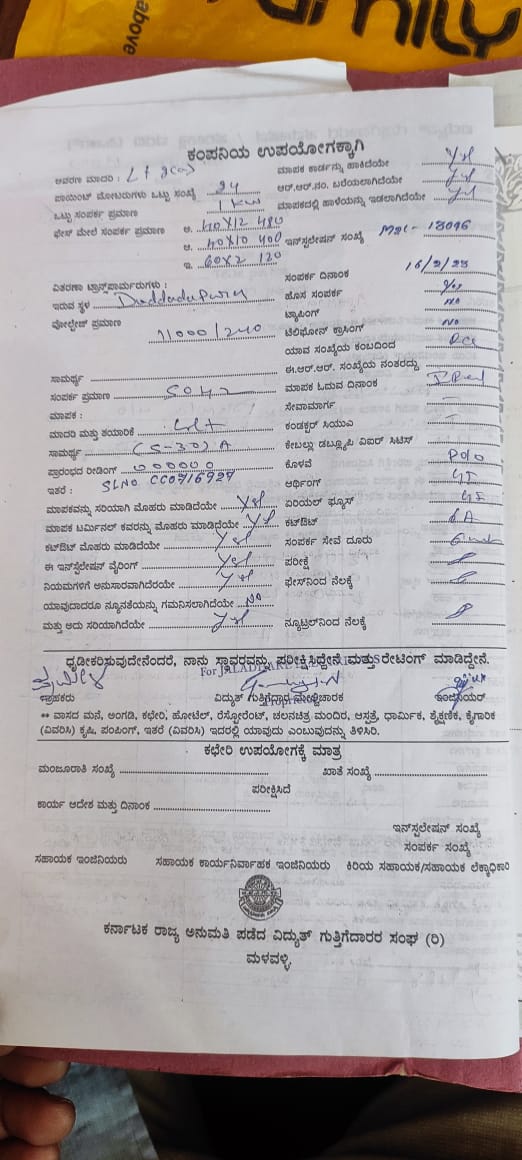 above
family
ಕಂಪನಿಯ ಉಪಯೋಗಕ್ಕಾಗಿ
ಆವರಣ ಮಾದರಿ : LT ಮಾಪಕ ಕಾರ್ಡನ್ನು ಹಾಕಿದೆಯೇ Yes
ಪಾಯಿಂಟ್ ಮೋಟರುಗಳು ಒಟ್ಟು ಸಂಖ್ಯೆ 24 ಆರ್.ಆರ್.ನಂ. ಬರೆಯಲಾಗಿದೆಯೇ Yes
ಒಟ್ಟು ಸಂಪರ್ಕ ಪ್ರಮಾಣ 1 KW ಮಾಪಕದಲ್ಲಿ ಹಾಳೆಯನ್ನು ಇಡಲಾಗಿದೆಯೇ Yes
ಫೇಸ್ ಮೇಲೆ ಸಂಪರ್ಕ ಪ್ರಮಾಣ ಅ. 40X12 480
ಆ. 40X10 400 ಇನ್‌ಸ್ಟಲೇಷನ್ ಸಂಖ್ಯೆ
ಇ. 60X2 120
ಸಂಪರ್ಕ ದಿನಾಂಕ 16/2/23
ವಿತರಣಾ ಟ್ರಾನ್ಸ್‌ಫಾರ್ಮರುಗಳು :
ಇರುವ ಸ್ಥಳ Doddadapura ಹೊಸ ಸಂಪರ್ಕ Yes
ಟ್ಯಾಪಿಂಗ್ No
ವೋಲ್ಟೇಜ್ ಪ್ರಮಾಣ 11000/240 ಟೆಲಿಫೋನ್ ಕ್ರಾಸಿಂಗ್ No
ಯಾವ ಸಂಖ್ಯೆಯ ಕಂಬದಿಂದ
ಸಾಮರ್ಥ್ಯ ಈ.ಆರ್.ಆರ್. ಸಂಖ್ಯೆಯ ನಂತರದ್ದು
ಸಂಪರ್ಕ ಪ್ರಮಾಣ 50Hz ಮಾಪಕ ಓದುವ ದಿನಾಂಕ
ಮಾಪಕ : ಸೇವಾಮಾರ್ಗ –
ಮಾದರಿ ಮತ್ತು ತಯಾರಿಕೆ L&T ಕಂಡಕ್ಟರ್ ಸಿಯುವಿ –
ಸಾಮರ್ಥ್ಯ (5-30) A ಕೇಬಲ್ಲು ಡಬ್ಲ್ಯೂಪಿ ವಿಐರ್ ಸಿಟಿಸ್
ಪ್ರಾರಂಭದ ರೀಡಿಂಗ್ 000000 ಕೊಳವೆ
ಇತರೆ : SLNO CC0716927 ಅರ್ಥಿಂಗ್ GI
ಮಾಪಕವನ್ನು ಸರಿಯಾಗಿ ಮೊಹರು ಮಾಡಿದೆಯೇ Yes ಏರಿಯಲ್ ಫ್ಯೂಸ್ GI
ಮಾಪಕ ಟರ್ಮಿನಲ್ ಕವರನ್ನು ಮೊಹರು ಮಾಡಿದೆಯೇ Yes ಕಟ್‌ಔಟ್
ಕಟ್‌ಔಟ್ ಮೊಹರು ಮಾಡಿದೆಯೇ Yes ಸಂಪರ್ಕ ಸೇವೆ ದೂರು
ಈ ಇನ್‌ಸ್ಟಲೇಷನ್ ವೈರಿಂಗ್ Yes ಪರೀಕ್ಷೆ
ನಿಯಮಗಳಿಗೆ ಅನುಸಾರವಾಗಿದೆರಯೇ Yes ಫೇಸ್‌ನಿಂದ ನೆಲಕ್ಕೆ
ಯಾವುದಾದರೂ ನ್ಯೂನತೆಯನ್ನು ಗಮನಿಸಲಾಗಿದೆಯೇ No
ಮತ್ತು ಅದು ಸರಿಯಾಗಿದೆಯೇ Yes ನ್ಯೂಟ್ರಲ್‌ನಿಂದ ನೆಲಕ್ಕೆ
ಧೃಡೀಕರಿಸುವುದೇನೆಂದರೆ, ನಾನು ಸ್ಥಾವರವನ್ನು ಪರೀಕ್ಷಿಸಿದ್ದೇನೆ ಮತ್ತು ರೇಟಿಂಗ್ ಮಾಡಿದ್ದೇನೆ.
For
ಗ್ರಾಹಕರು ವಿದ್ಯುತ್ ಗುತ್ತಿಗೆದಾರ ಮೇಲ್ವಿಚಾರಕ ಇಂಜಿನಿಯರ್
** ವಾಸದ ಮನೆ, ಅಂಗಡಿ, ಕಛೇರಿ, ಹೋಟೆಲ್, ರೆಸ್ಟೋರೆಂಟ್, ಚಲನಚಿತ್ರ ಮಂದಿರ, ಆಸ್ಪತ್ರೆ, ಧಾರ್ಮಿಕ, ಶೈಕ್ಷಣಿಕ, ಕೈಗಾರಿಕ
(ವಿವರಿಸಿ) ಕೃಷಿ, ಪಂಪಿಂಗ್, ಇತರೆ (ವಿವರಿಸಿ) ಇದರಲ್ಲಿ ಯಾವುದು ಎಂಬುವುದನ್ನು ತಿಳಿಸಿರಿ.
ಕಛೇರಿ ಉಪಯೋಗಕ್ಕೆ ಮಾತ್ರ
ಮಂಜೂರಾತಿ ಸಂಖ್ಯೆ ಖಾತೆ ಸಂಖ್ಯೆ
ಪರೀಕ್ಷಿಸಿದೆ
ಕಾರ್ಯ ಆದೇಶ ಮತ್ತು ದಿನಾಂಕ
ಇನ್‌ಸ್ಟಲೇಷನ್ ಸಂಖ್ಯೆ
ಸಂಪರ್ಕ ಸಂಖ್ಯೆ
ಸಹಾಯಕ ಇಂಜಿನಿಯರು ಸಹಾಯಕ ಕಾರ್ಯನಿರ್ವಾಹಕ ಇಂಜಿನಿಯರು ಕಿರಿಯ ಸಹಾಯಕ/ಸಹಾಯಕ ಲೆಕ್ಕಾಧಿಕಾರಿ
ಕರ್ನಾಟಕ ರಾಜ್ಯ ಅನುಮತಿ ಪಡೆದ ವಿದ್ಯುತ್ ಗುತ್ತಿಗೆದಾರರ ಸಂಘ (ರಿ)
ಮಳವಳ್ಳಿ.